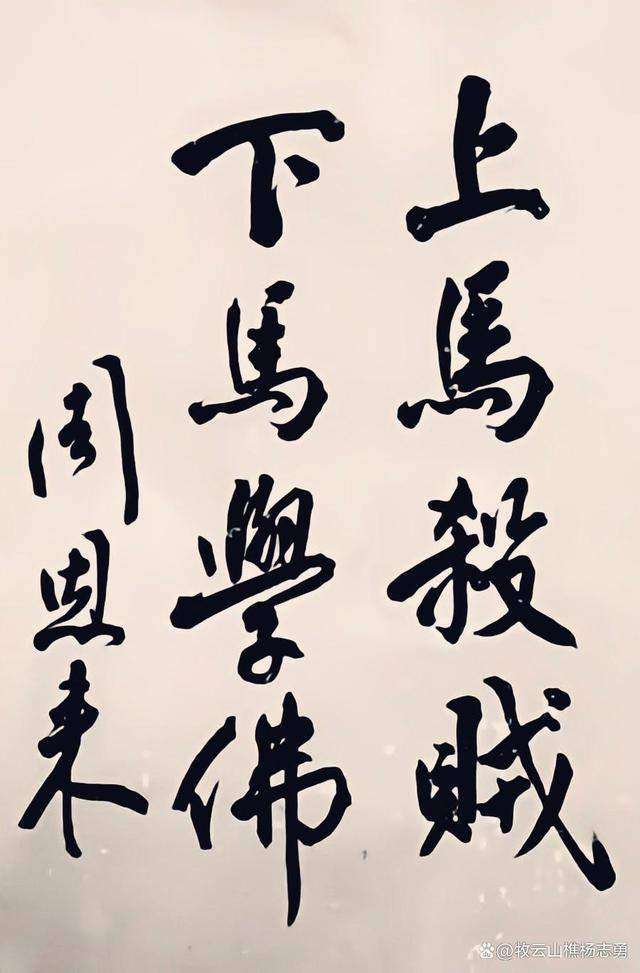 上馬殺賊
下馬學佛
周恩来
@牧云山樵杨志勇